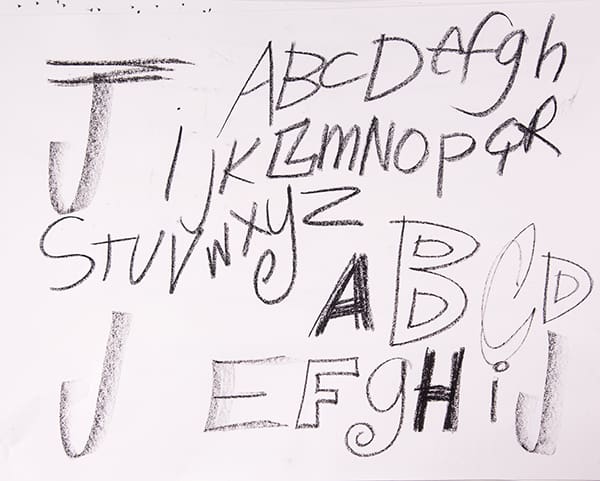 J
ABCDefgh
ijKLMNOPQR
STUVWXyZ
ABCD
J
EFgHiJ